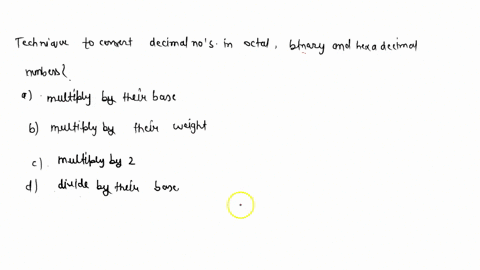 Technique to convert decimal no's. in octal, binary and hexadecimal
numbers?
a) multiply by their base
b) multiply by their weight
c) multiply by 2
d) divide by their base